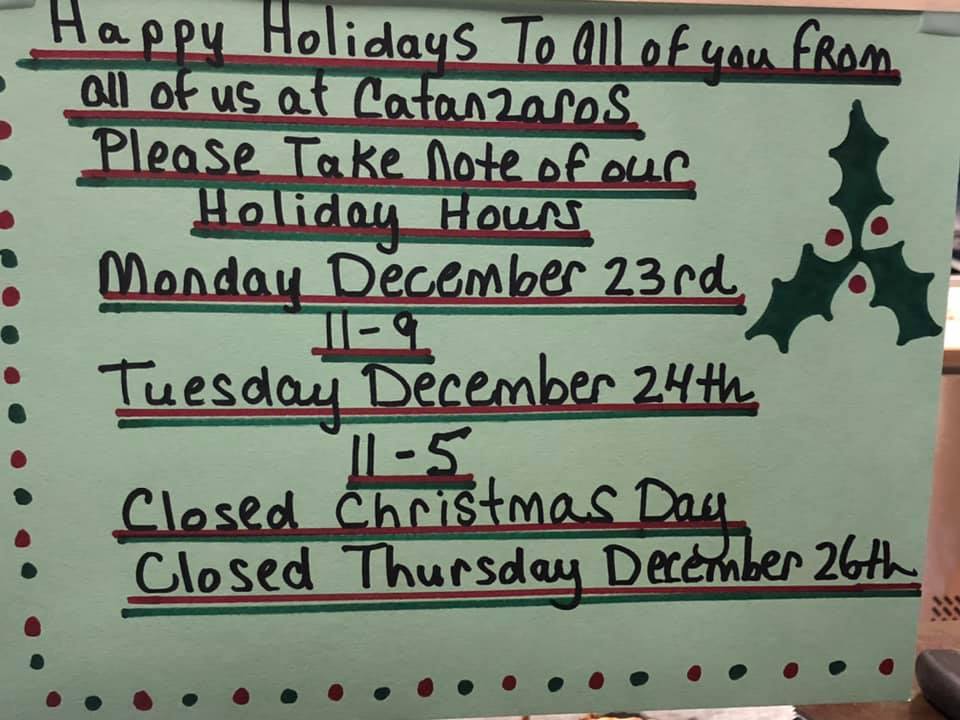 Happy Holidays To All of you FROM
all of us at Catanzaros
Please Take Note of our
Holiday Hours
Monday December 23rd
11-9
Tuesday December 24th
11-5
Closed Christmas Day
Closed Thursday December 26th